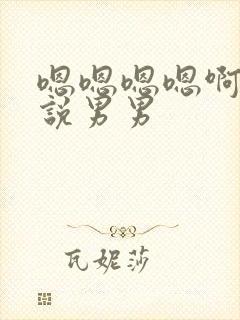 嗯嗯嗯嗯啊
說男男
瓦妮莎